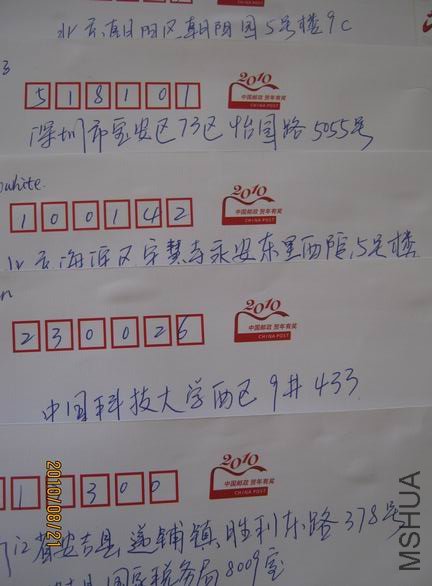 北京朝阳区朝阳园5号楼9C
3
518101
2010
中国邮政 贺年有奖
CHINA POST
深圳市宝安区73区怡园路5055号
white
100142
2010
中国邮政 贺年有奖
CHINA POST
北京海淀区定慧寺永安东里西院,5号楼
n
230026
2010
中国邮政 贺年有奖
CHINA POST
中国科技大学西区9# 433
1 300
2010
中国邮政 贺年有奖
CHINA POST
江省安吉县递铺镇胜利东路378号
国家税务局8009室
2010/08/21
MSHUA